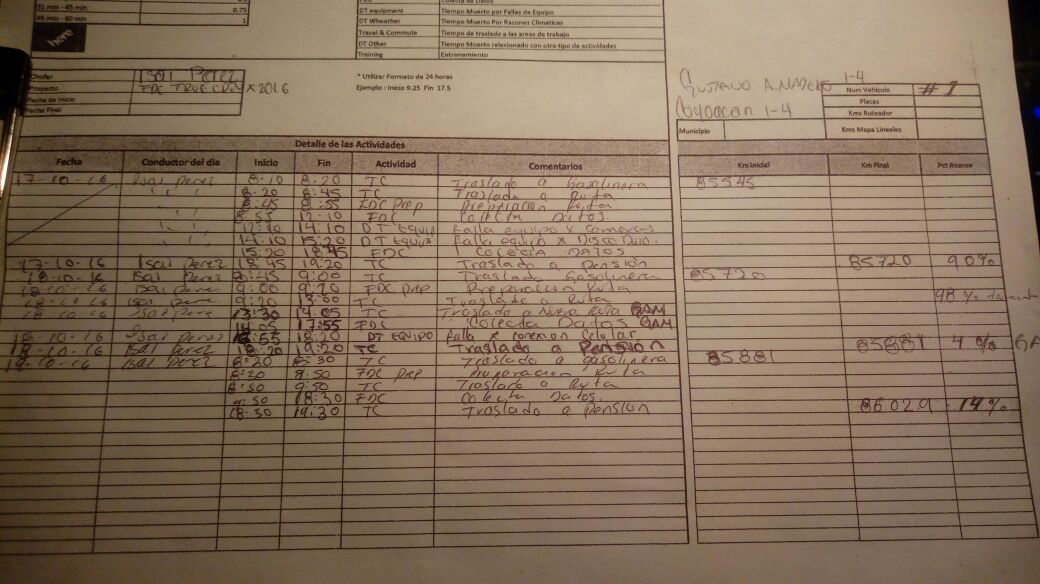 31 min - 45 min 0.75
46 min - 60 min 1
here
DT equipment Tiempo Muerto por Fallas de Equipo
DT Wheather Tiempo Muerto Por Razones Climaticas
Travel & Commute Tiempo de traslado a las areas de trabajo
DT Other Tiempo Muerto relacionado con otro tipo de actividades
Training Entrenamiento
Chofer Isai Perez
Proyecto FDC TRUE MX 2016
Fecha de Inicio
Fecha Final
* Utilizar Formato de 24 horas
Ejemplo : Inicio 9.25 Fin 17.5
Gustavo A. Madero 1-4
Coyoacan 1-4
Municipio
Num Vehiculo #1
Placas
Kms Ruteador
Kms Mapa Lineales
Detalle de las Actividades
Fecha Conductor del dia Inicio Fin Actividad Comentarios Km Inicial Km Final Pct Avance
17-10-16 Isai Perez 8:10 8:20 TC Traslado a Gasolinera 85545
8:20 8:45 TC Traslado a Ruta
8:45 8:55 FDC Prep Preparacion Ruta
8:55 FDC Colecta Datos.
14:10 DT Equip Falla equipo x
14:10 15:20 DT Equipo Falla equipo x Disco Duro.
15:20 18:45 FDC Colecta DATOS
17-10-16 Isai Perez 18:45 19:20 TC Traslado a Pensión 85720 90%
18-10-16 Isai Perez 8:45 9:00 TC Traslado Gasolinera 85720
18-10-16 Isai Perez 9:00 9:20 FDC prep Preparacion Ruta
18-10-16 Isai Perez 9:20 TC Traslado a Ruta 98%
18-10-16 Isai Perez 13:30 14:05 TC Traslado a Nueva Ruta GAM
14:05 17:55 FDC Colecta Datos GAM
18-10-16 Isai Perez 18:20 DT EQUIPO falla x conexion Celular
18-10-16 Isai Perez 18:20 19:20 TC Traslado a Pensión 85881 4%
19-10-16 Isai Perez TC Traslado a gasolinera 85881
FDC prep Preparacion Ruta
9:50 TC Traslado a Ruta
9:50 18:30 FDC Colecta Datos.
18:30 19:30 TC Traslado a pension 86029 14%